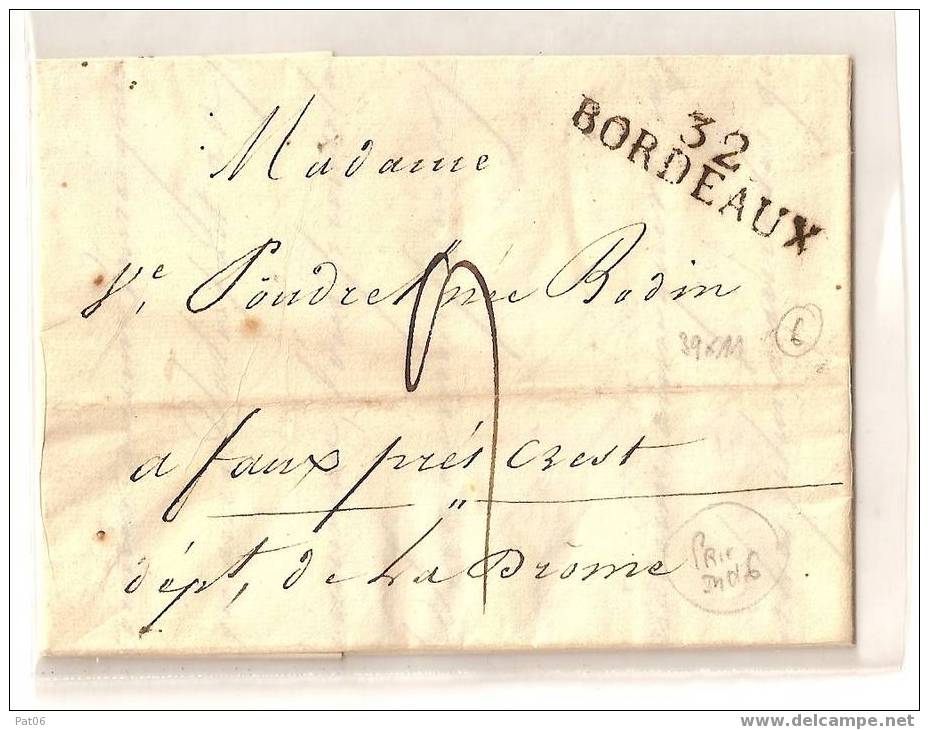 32
BORDEAUX
Madame
Ve. Poudrel née Bodin
6
39x11
a faux prés Crest
"
dépt, de La Drome
Prix
Ind 6
Pat06
www.delcampe.net